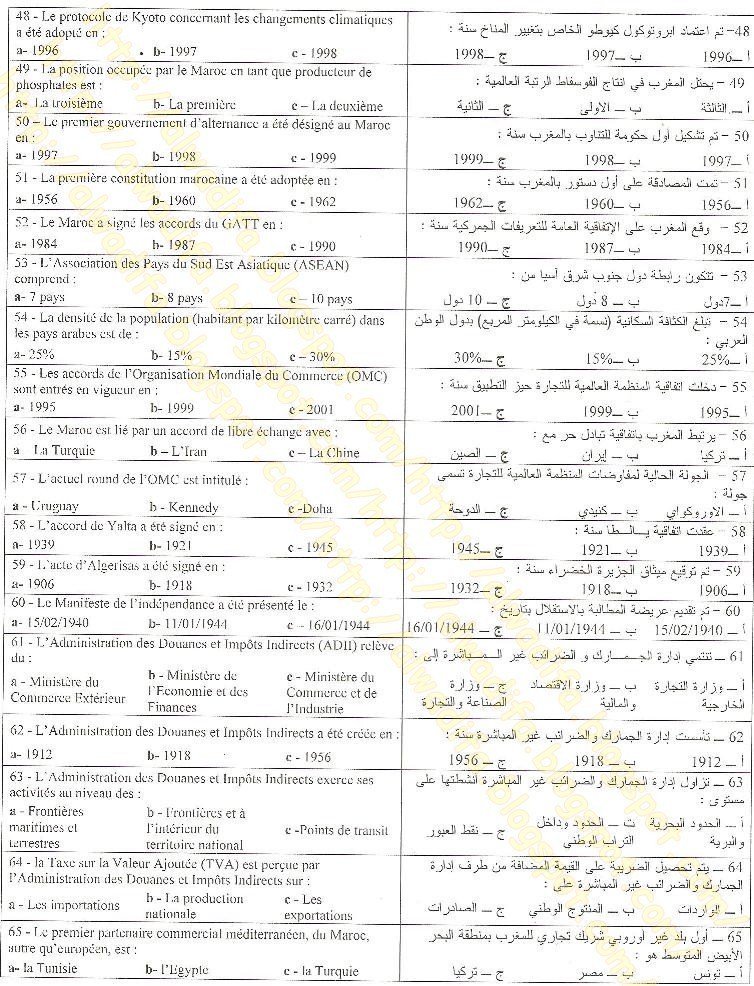 48 - Le protocole de Kyoto concernant les changements climatiques
a été adopté en :
a- 1996 b- 1997 c - 1998
48- تم اعتماد ابروتوكول كيوطو الخاص بتغيير المناخ سنة :
أ ــ 1996 ب ــ 1997 ج ــ 1998
49 - La position occupée par le Maroc en tant que producteur de
phosphates est :
a- La troisième b- La première c – La deuxième
49 - يحتل المغرب في انتاج الفوسفاط الرتبة العالمية :
أ ــ الثالثة ب ــ الاولى ج ــ الثانية
50 – Le premier gouvernement d'alternance a été désigné au Maroc
en :
a- 1997 b- 1998 c - 1999
50 - تم تشكيل أول حكومة للتناوب بالمغرب سنة :
أ ــ 1997 ب ــ 1998 ج ــ 1999
51 - La première constitution marocaine a été adoptée en :
a- 1956 b- 1960 c - 1962
51 - تمت المصادقة على أول دستور بالمغرب سنة :
أ ــ 1956 ب ــ 1960 ج ــ 1962
52 - Le Maroc a signé les accords du GATT en :
a- 1984 b- 1987 c - 1990
52 - وقع المغرب على الإتفاقية العامة للتعريفات الجمركية سنة :
أ ــ 1984 ب ــ 1987 ج ــ 1990
53 - L'Association des Pays du Sud Est Asiatique (ASEAN)
comprend :
a- 7 pays b- 8 pays c – 10 pays
53 - تتكون رابطة دول جنوب شرق آسيا من :
أ ــ 7دول ب ــ 8 دول ج ــ 10 دول
54 - La densité de la population (habitant par kilomètre carré) dans
les pays arabes est de :
a- 25% b- 15% c – 30%
54 - تبلغ الكثافة السكانية (نسمة في الكيلومتر المربع) بدول الوطن
العربي :
أ ــ 25% ب ــ 15% ج ــ 30%
55 - Les accords de l'Organisation Mondiale du Commerce (OMC)
sont entrés en vigueur en :
a- 1995 b- 1999 c - 2001
55 - دخلت اتفاقية المنظمة العالمية للتجارة حيز التطبيق سنة :
أ ــ 1995 ب ــ 1999 ج ــ 2001
56 - Le Maroc est lié par un accord de libre échange avec :
a La Turquie b – L'Iran c – La Chine
56 - يرتبط المغرب باتفاقية تبادل حر مع :
أ ــ تركيا ب ــ إيران ج ــ الصين
57 - L'actuel round de l'OMC est intitulé :
a - Uruguay b - Kennedy c -Doha
57 - الجولة الحالية لمفاوضات المنظمة العالمية للتجارة تسمى
جولة :
أ ــ الاوروكواي ب ــ كنيدي ج ــ الدوحة
58 - L'accord de Yalta a été signé en :
a- 1939 b- 1921 c - 1945
58 - عقدت اتفاقية يـــالـــطا سنة :
أ ــ 1939 ب ــ 1921 ج ــ 1945
59 - L'acte d'Algerisas a été signé en :
a- 1906 b- 1918 c - 1932
59 - تم توقيع ميثاق الجزيرة الخضراء سنة :
أ ــ 1906 ب ــ 1918 ج ــ 1932
60 - Le Manifeste de l'indépendance a été présenté le :
a- 15/02/1940 b- 11/01/1944 c – 16/01/1944
60 – تم تقديم عريضة المطالبة بالاستقلال بتاريخ :
أ ــ 15/02/1940 ب ــ 11/01/1944 ج ــ 16/01/1944
61 - L'Administration des Douanes et Impôts Indirects (ADII) relève
du :
a - Ministère du Commerce Extérieur b - Ministère de l'Economie et des Finances c - Ministère du Commerce et de l'Industrie
61 – تنتمي إدارة الجمـــارك و الضرائب غير المـــباشرة إلى :
أ ــ وزارة التجارة الخارجية ب ــ وزارة الاقتصاد والمالية ج ــ وزارة الصناعة والتجارة
62 - L'Administration des Douanes et Impôts Indirects a été créée en :
a- 1912 b- 1918 c - 1956
62 – تأسست إدارة الجمارك والضرائب غير المباشرة سنة :
أ ــ 1912 ب ــ 1918 ج ــ 1956
63 - L'Administration des Douanes et Impôts Indirects exerce ses
activités au niveau des :
a - Frontières maritimes et terrestres b - Frontières et à l'intérieur du territoire national c -Points de transit
63 – تزاول إدارة الجمارك والضرائب غير المباشرة أنشطتها على
مستوى :
أ ــ الحدود البحرية والبرية ت ــ الحدود وداخل التراب الوطني ج ــ نقط العبور
64 - la Taxe sur la Valeur Ajoutée (TVA) est perçue par
l'Administration des Douanes et Impôts Indirects sur :
a - Les importations b - La production nationale c - Les exportations
64 – يتم تحصيل الضريبة على القيمة المضافة من طرف إدارة
الجمارك والضرائب غير المباشرة على :
أ ــ الواردات ب ــ المنتوج الوطني ج ــ الصادرات
65 - Le premier partenaire commercial méditerranéen, du Maroc,
autre qu'européen, est :
a- la Tunisie b- l'Egypte c - la Turquie
65 – أول بلد غير أوروبي شريك تجاري للمغرب بمنطقة البحر
الأبيض المتوسط هو :
أ ــ تونس ب ــ مصر ج ــ تركيا